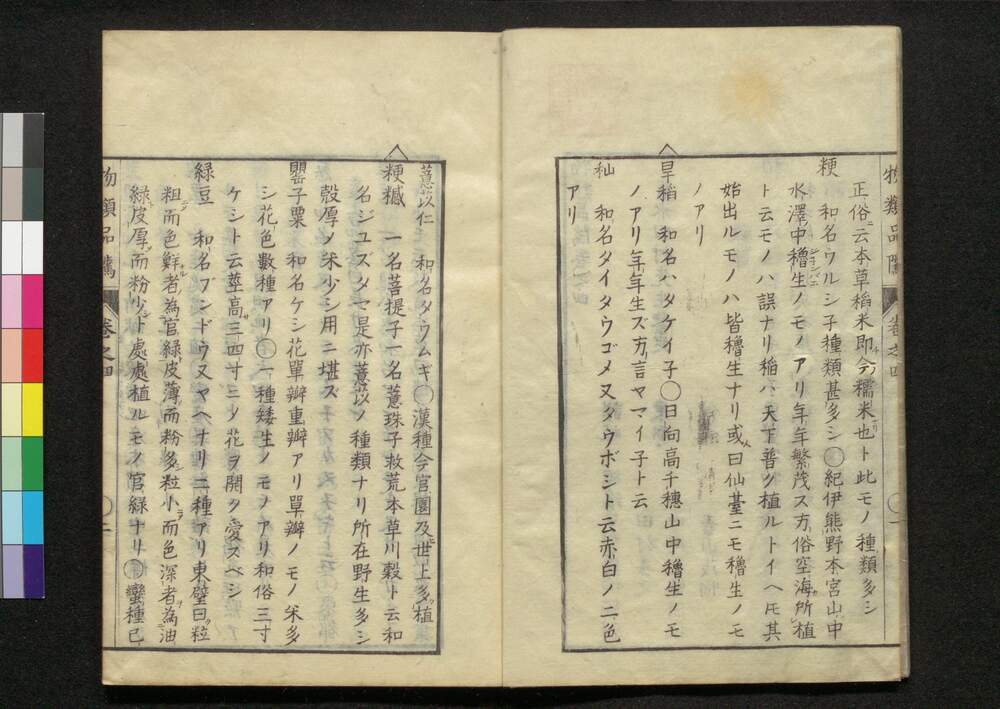 物類品隲
卷之四
正俗云本草稻米即今ノ糯米也ト此モノ種類多シ
粳 和名ウルシ子種類甚多シ〇紀伊熊野本宮山中
水澤中穭生ノモノアリ年年繁茂ス方俗空海ノ所植
ト云モノハ誤ナリ稻ハ天下普ク植ルトイヘトモ其
始出ルモノハ皆穭生ナリ或人曰仙臺ニモ穭生ノモ
ノアリ
旱稻 和名ハタケイ子〇日向高千穗山中穭生ノモ
ノアリ年年生ズ方言ヤマイ子ト云
籼 和名タイタウゴメ又タウボシト云赤白ノ二色
アリ
薏苡仁 和名タウムギ〇漢種今官園及世上多植
粳𥽇 一名菩提子一名薏珠子救荒本草川穀ト云和
名ジユズダマ是亦薏苡ノ種類ナリ所在野生多シ
殼厚ク米少シ用ニ堪ズ
罌子粟 和名ケシ花單瓣重瓣アリ單瓣ノモノ米多
シ花色數種アリ〇一種矮生ノモノアリ和俗三寸
ケシト云莖高サ三四寸ニシテ花ヲ開ク愛スベシ
綠豆 和名ブンドウ又ヤヘナリ二種アリ東璧曰粒
粗而色鮮者為官綠皮薄而粉多粒小而色深者為油
綠皮厚而粉少ト處處植ルモノ官綠ナリ〇蠻種已
物類品隲
卷之四
〇二